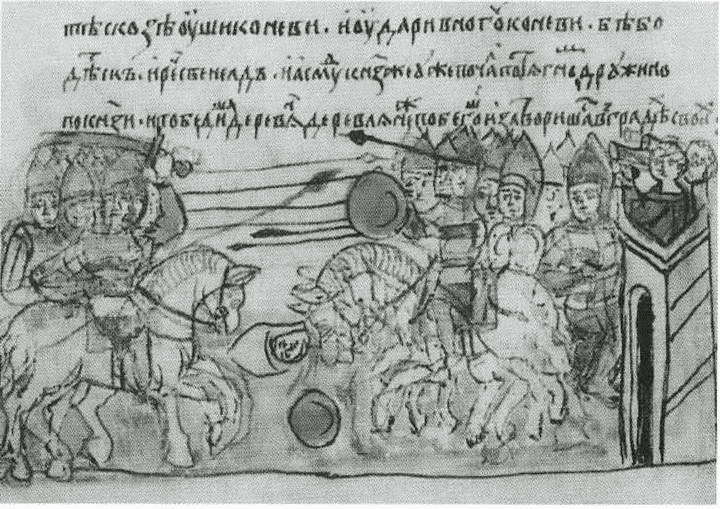 тѣ скозѣ оуши коневи · и оудари в ногы коневи · бѣ бо
дѣтескъ · и рече свенелдъ · и асмуⷣ кн҃зь оуже поча потѧгнѣⷨ дружино
по кн҃зи · и победиша деревлѧⷩ деревлѧнеⷤ побегоша и затворишаⷭ в градѣ своиⷯ